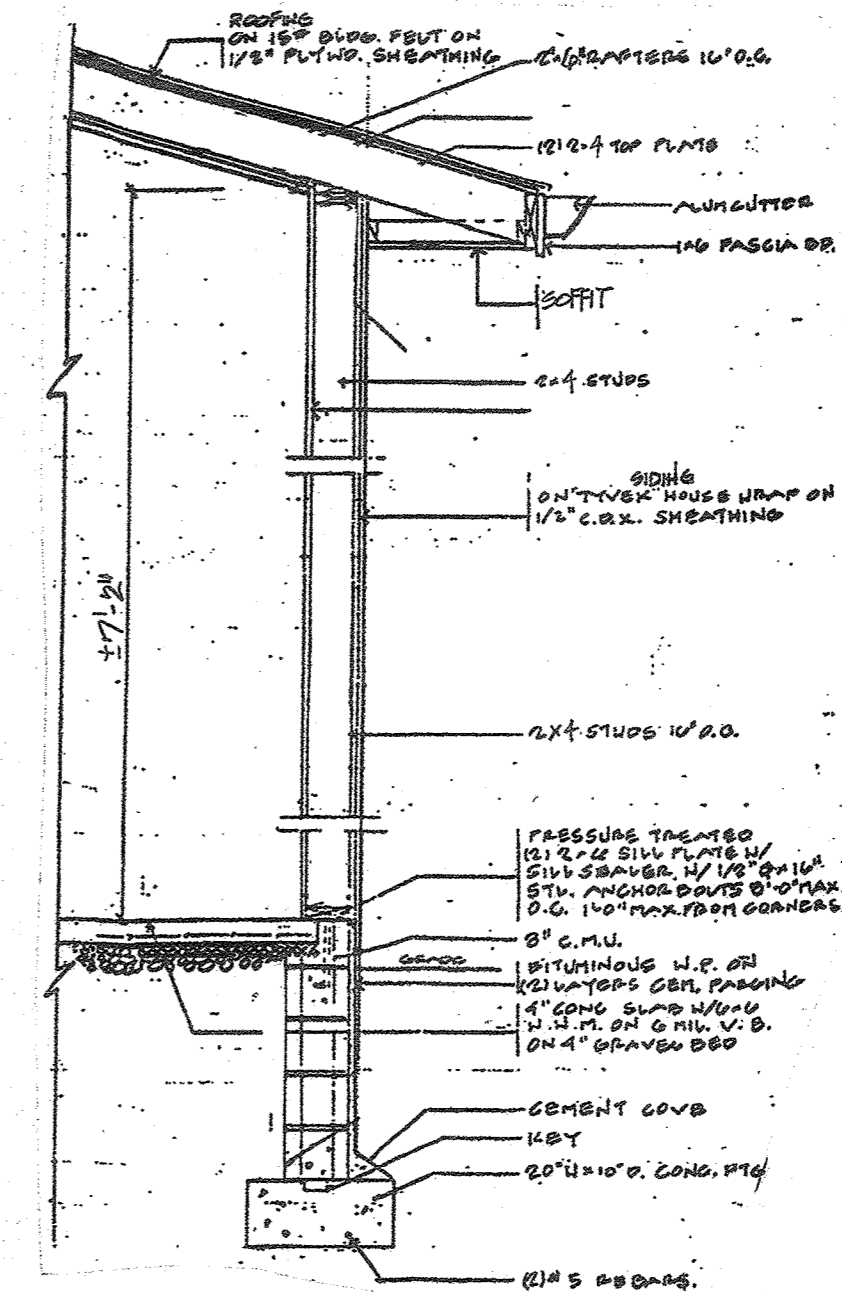 ROOFING
ON 15# BLDG. FELT ON
1/2" PLYWD. SHEATHING
2"x6" RAFTERS 16" O.C.
(2) 2x4 TOP PLATE
ALUM GUTTER
1x6 FASCIA BD.
SOFFIT
2x4 STUDS
SIDING
ON "TYVEK" HOUSE WRAP ON
1/2" C.D.X. SHEATHING
±7'-2"
2X4 STUDS 16" O.C.
PRESSURE TREATED
(2) 2x6 SILL PLATE W/
SILL SEALER, W/ 1/2" Øx16"
STL. ANCHOR BOLTS 8'-0" MAX.
O.C. 1'-0" MAX. FROM CORNERS
8" C.M.U.
GRADE
BITUMINOUS W.P. ON
(2) LAYERS CEM. PARGING
4" CONC SLAB W/6x6
W.W.M. ON 6 MIL. V.B.
ON 4" GRAVEL BED
CEMENT COVE
KEY
20"W x 10"D. CONC. FTG
(2) # 5 REBARS.